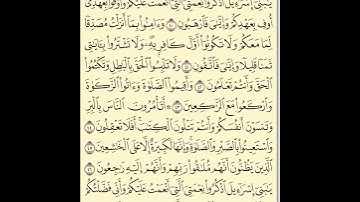 يَٰبَنِىٓ إِسْرَٰٓءِيلَ ٱذْكُرُوا۟ نِعْمَتِىَ ٱلَّتِىٓ أَنْعَمْتُ عَلَيْكُمْ وَأَوْفُوا۟ بِعَهْدِىٓ
أُوفِ بِعَهْدِكُمْ وَإِيَّٰىَ فَٱرْهَبُونِ ٤٠ وَءَامِنُوا۟ بِمَآ أَنزَلْتُ مُصَدِّقًا
لِّمَا مَعَكُمْ وَلَا تَكُونُوٓا۟ أَوَّلَ كَافِرٍۭ بِهِۦ وَلَا تَشْتَرُوا۟ بِـَٔايَٰتِى
ثَمَنًا قَلِيلًا وَإِيَّٰىَ فَٱتَّقُونِ ٤١ وَلَا تَلْبِسُوا۟ ٱلْحَقَّ بِٱلْبَٰطِلِ وَتَكْتُمُوا۟
ٱلْحَقَّ وَأَنتُمْ تَعْلَمُونَ ٤٢ وَأَقِيمُوا۟ ٱلصَّلَوٰةَ وَءَاتُوا۟ ٱلزَّكَوٰةَ
وَٱرْكَعُوا۟ مَعَ ٱلرَّٰكِعِينَ ٤٣ أَتَأْمُرُونَ ٱلنَّاسَ بِٱلْبِرِّ
وَتَنسَوْنَ أَنفُسَكُمْ وَأَنتُمْ تَتْلُونَ ٱلْكِتَٰبَ أَفَلَا تَعْقِلُونَ ٤٤
وَٱسْتَعِينُوا۟ بِٱلصَّبْرِ وَٱلصَّلَوٰةِ وَإِنَّهَا لَكَبِيرَةٌ إِلَّا عَلَى ٱلْخَٰشِعِينَ ٤٥
ٱلَّذِينَ يَظُنُّونَ أَنَّهُم مُّلَٰقُوا۟ رَبِّهِمْ وَأَنَّهُمْ إِلَيْهِ رَٰجِعُونَ ٤٦
يَٰبَنِىٓ إِسْرَٰٓءِيلَ ٱذْكُرُوا۟ نِعْمَتِىَ ٱلَّتِىٓ أَنْعَمْتُ عَلَيْكُمْ وَأَنِّى فَضَّلْتُكُمْ